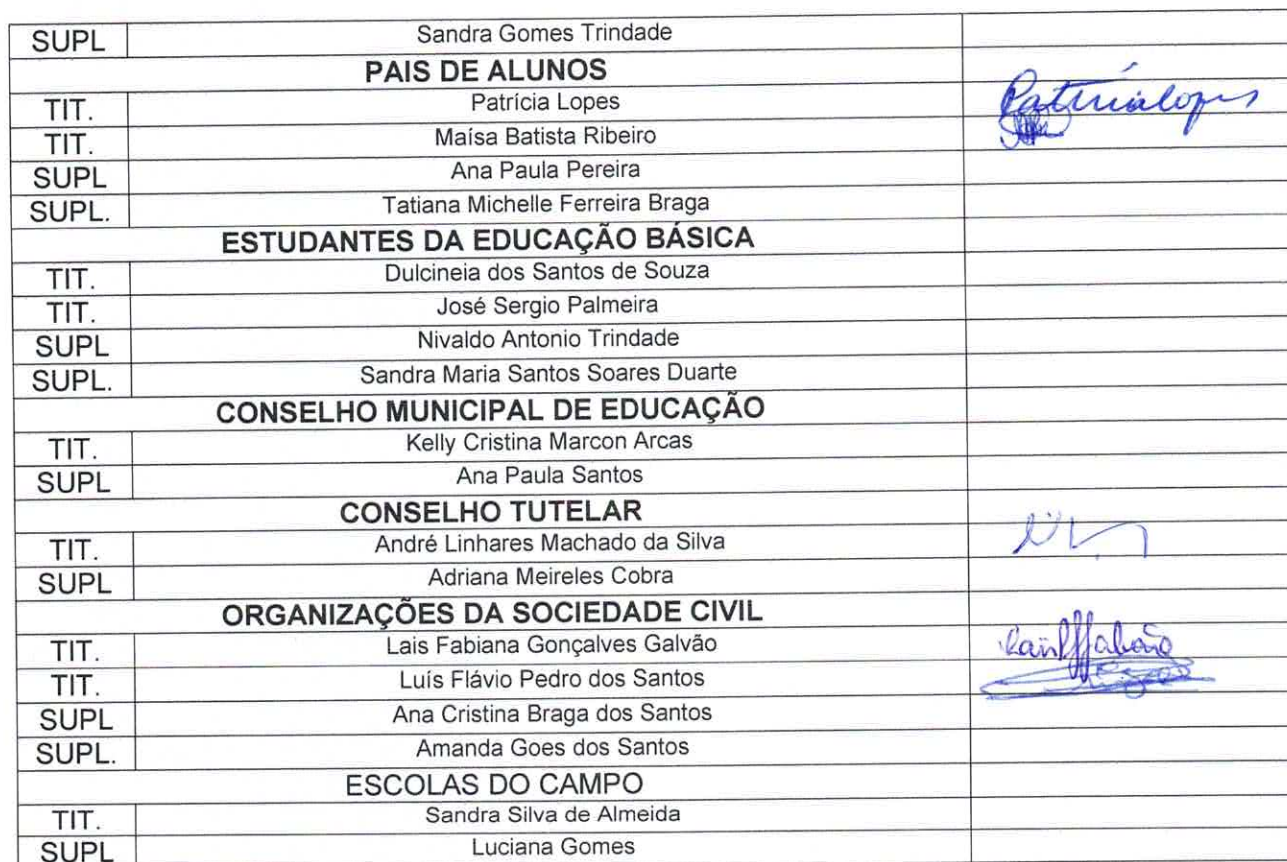 SUPL Sandra Gomes Trindade
PAIS DE ALUNOS
TIT. Patrícia Lopes Patricia Lopes
TIT. Maísa Batista Ribeiro
SUPL Ana Paula Pereira
SUPL. Tatiana Michelle Ferreira Braga
ESTUDANTES DA EDUCAÇÃO BÁSICA
TIT. Dulcineia dos Santos de Souza
TIT. José Sergio Palmeira
SUPL Nivaldo Antonio Trindade
SUPL. Sandra Maria Santos Soares Duarte
CONSELHO MUNICIPAL DE EDUCAÇÃO
TIT. Kelly Cristina Marcon Arcas
SUPL Ana Paula Santos
CONSELHO TUTELAR
TIT. André Linhares Machado da Silva
SUPL Adriana Meireles Cobra
ORGANIZAÇÕES DA SOCIEDADE CIVIL
TIT. Lais Fabiana Gonçalves Galvão
TIT. Luís Flávio Pedro dos Santos
SUPL Ana Cristina Braga dos Santos
SUPL. Amanda Goes dos Santos
ESCOLAS DO CAMPO
TIT. Sandra Silva de Almeida
SUPL Luciana Gomes